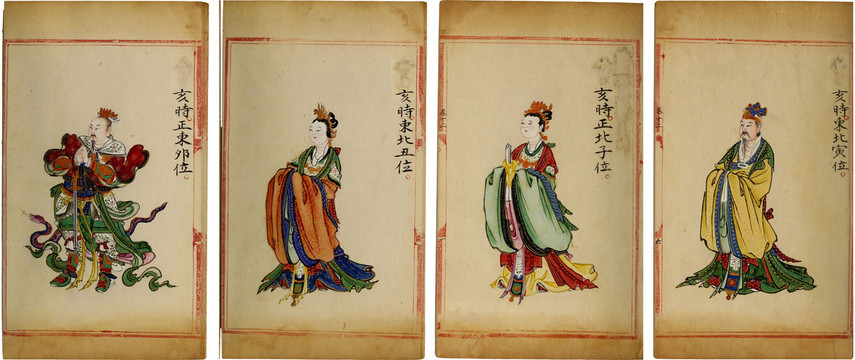 亥時正東卯位
亥時東北丑位
亥時正北子位
亥時東北寅位